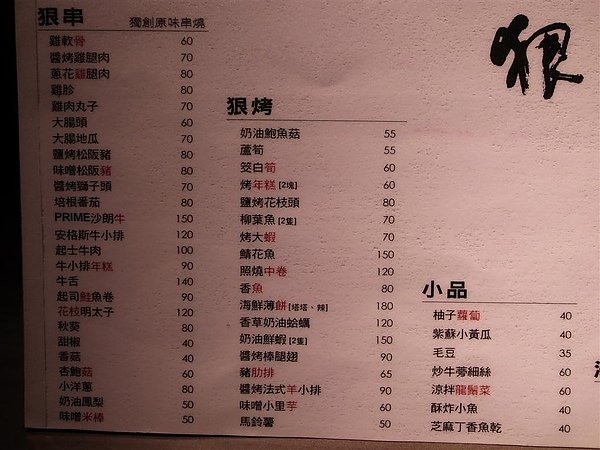 狠串 獨創原味串燒
雞軟骨 60
醬烤雞腿肉 70
蔥花雞腿肉 80
雞胗 80
雞肉丸子 70
大腸頭 60
大腸地瓜 70
鹽烤松阪豬 80
味噌松阪豬 80
醬烤獅子頭 70
培根番茄 80
PRIME沙朗牛 150
安格斯牛小排 120
起士牛肉 100
牛小排年糕 90
牛舌 140
起司鮭魚卷 90
花枝明太子 120
秋葵 80
甜椒 40
香菇 40
杏鮑菇 60
小洋蔥 80
奶油鳳梨 50
味噌米棒 50
狠烤
奶油鮑魚菇 55
蘆筍 55
筊白筍 60
烤年糕 [2塊] 60
鹽烤花枝頭 80
柳葉魚 [2隻] 70
烤大蝦 70
鯖花魚 150
照燒中卷 120
香魚 80
海鮮薄餅 [塔塔、辣] 180
香草奶油蛤蠣 120
奶油鮮蝦 [2隻] 150
醬烤棒腿翅 90
豬肋排 65
醬烤法式羊小排 90
味噌小里芋 60
馬鈴薯 50
狠
小品
柚子蘿蔔 40
紫蘇小黃瓜 40
毛豆 35
炒牛蒡細絲 60
涼拌龍鬚菜 60
酥炸小魚 40
芝麻丁香魚乾 40